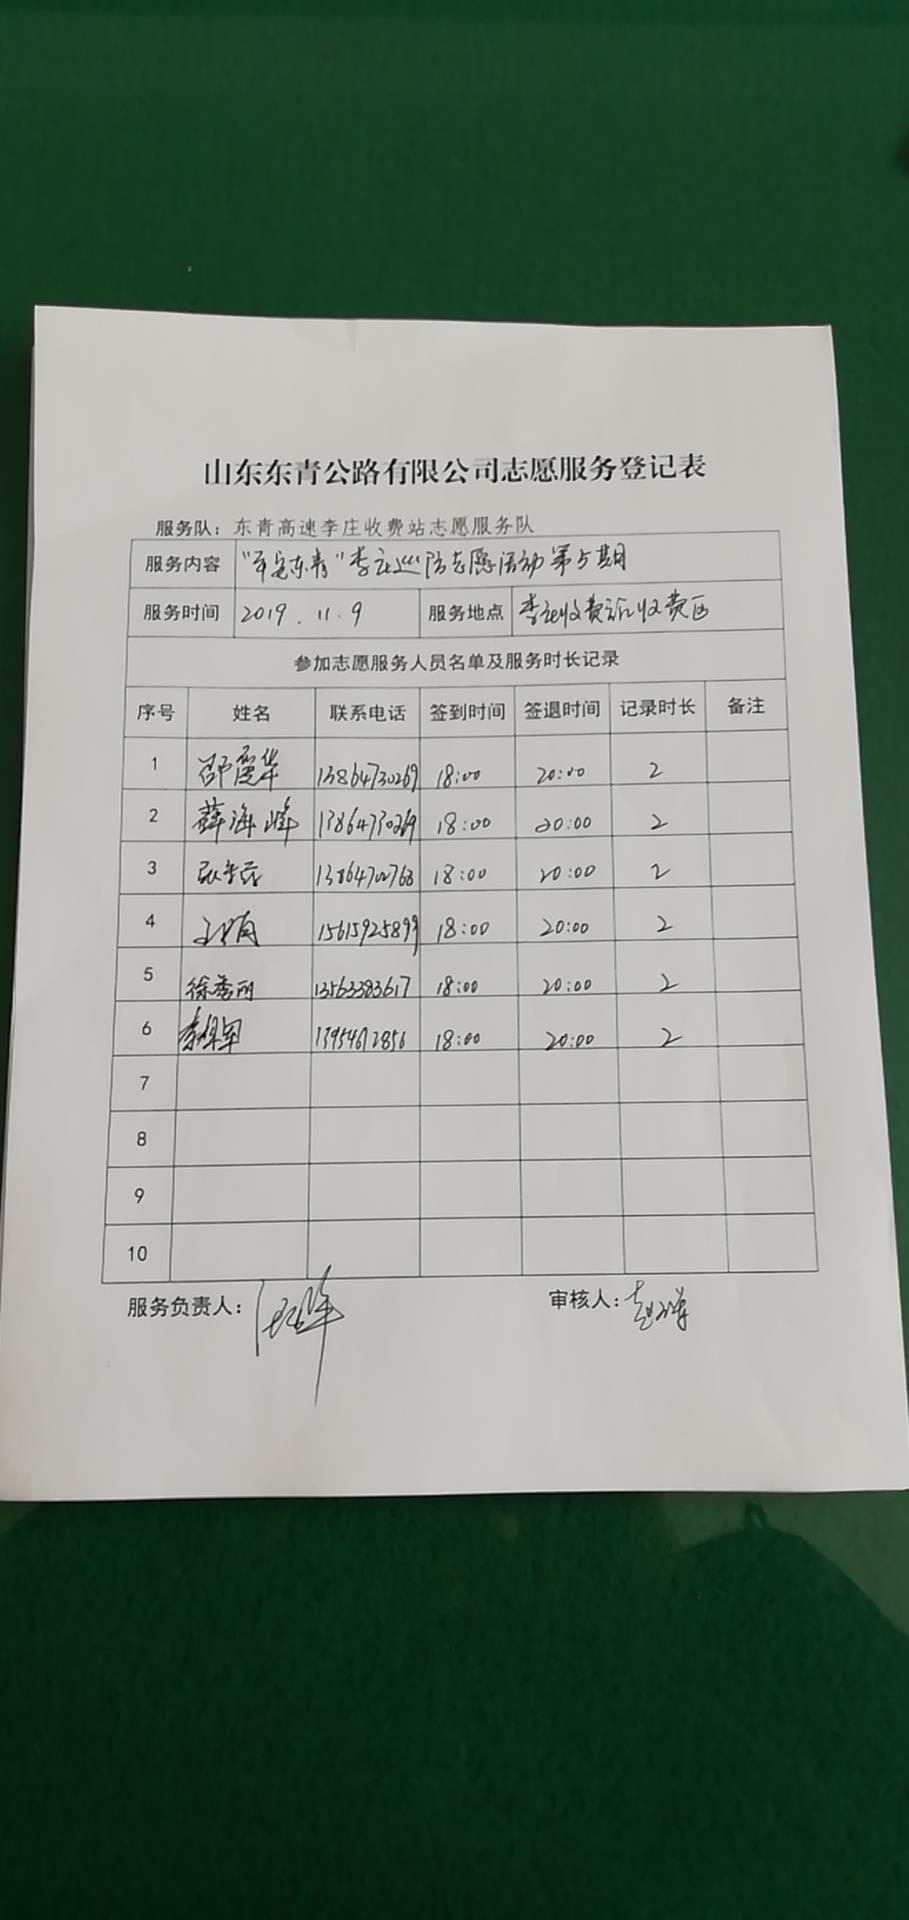 山东东青公路有限公司志愿服务登记表
服务队：东青高速李庄收费站志愿服务队
服务内容 “平安东青”李庄巡防志愿活动第5期
服务时间 2019.11.9 服务地点 李庄收费站收费区
参加志愿服务人员名单及服务时长记录
序号 姓名 联系电话 签到时间 签退时间 记录时长 备注
1 13864730269 18:00 20:00 2
2 薛海峰 13864730269 18:00 20:00 2
3 13864702768 18:00 20:00 2
4 15615925899 18:00 20:00 2
5 徐秀丽 13563383617 18:00 20:00 2
6 18:00 20:00 2
7
8
9
10
服务负责人： 审核人：